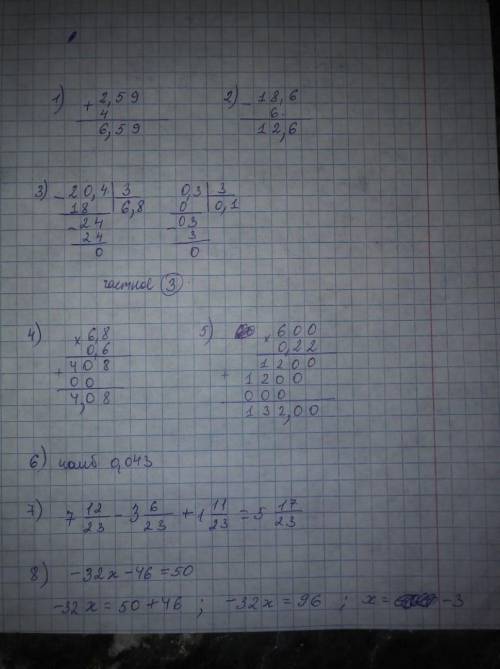 1) + 2,59
4
6,59
2) - 18,6
6
12,6
3) - 20,4 | 3
18 | 6,8
- 24
24
0
0,3 | 3
0 | 0,1
- 03
3
0
частное 3
4) × 6,8
0,6
+ 408
00
4,08
5) × 600
0,22
+ 1200
1200
000
132,00
6) наиб 0,043
7) 7 12/23 - 3 6/23 + 1 11/23 = 5 17/23
8) -32x - 46 = 50
-32x = 50 + 46 ; -32x = 96 ; x = -3